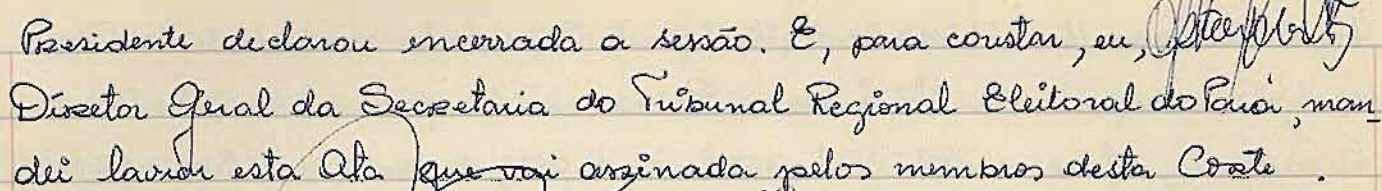 Presidente declarou encerrada a sessão. E, para constar, eu,
Diretor Geral da Secretaria do Tribunal Regional Eleitoral do Pará, man
dei lavrar esta Ata que vai assinada pelos membros desta Corte.